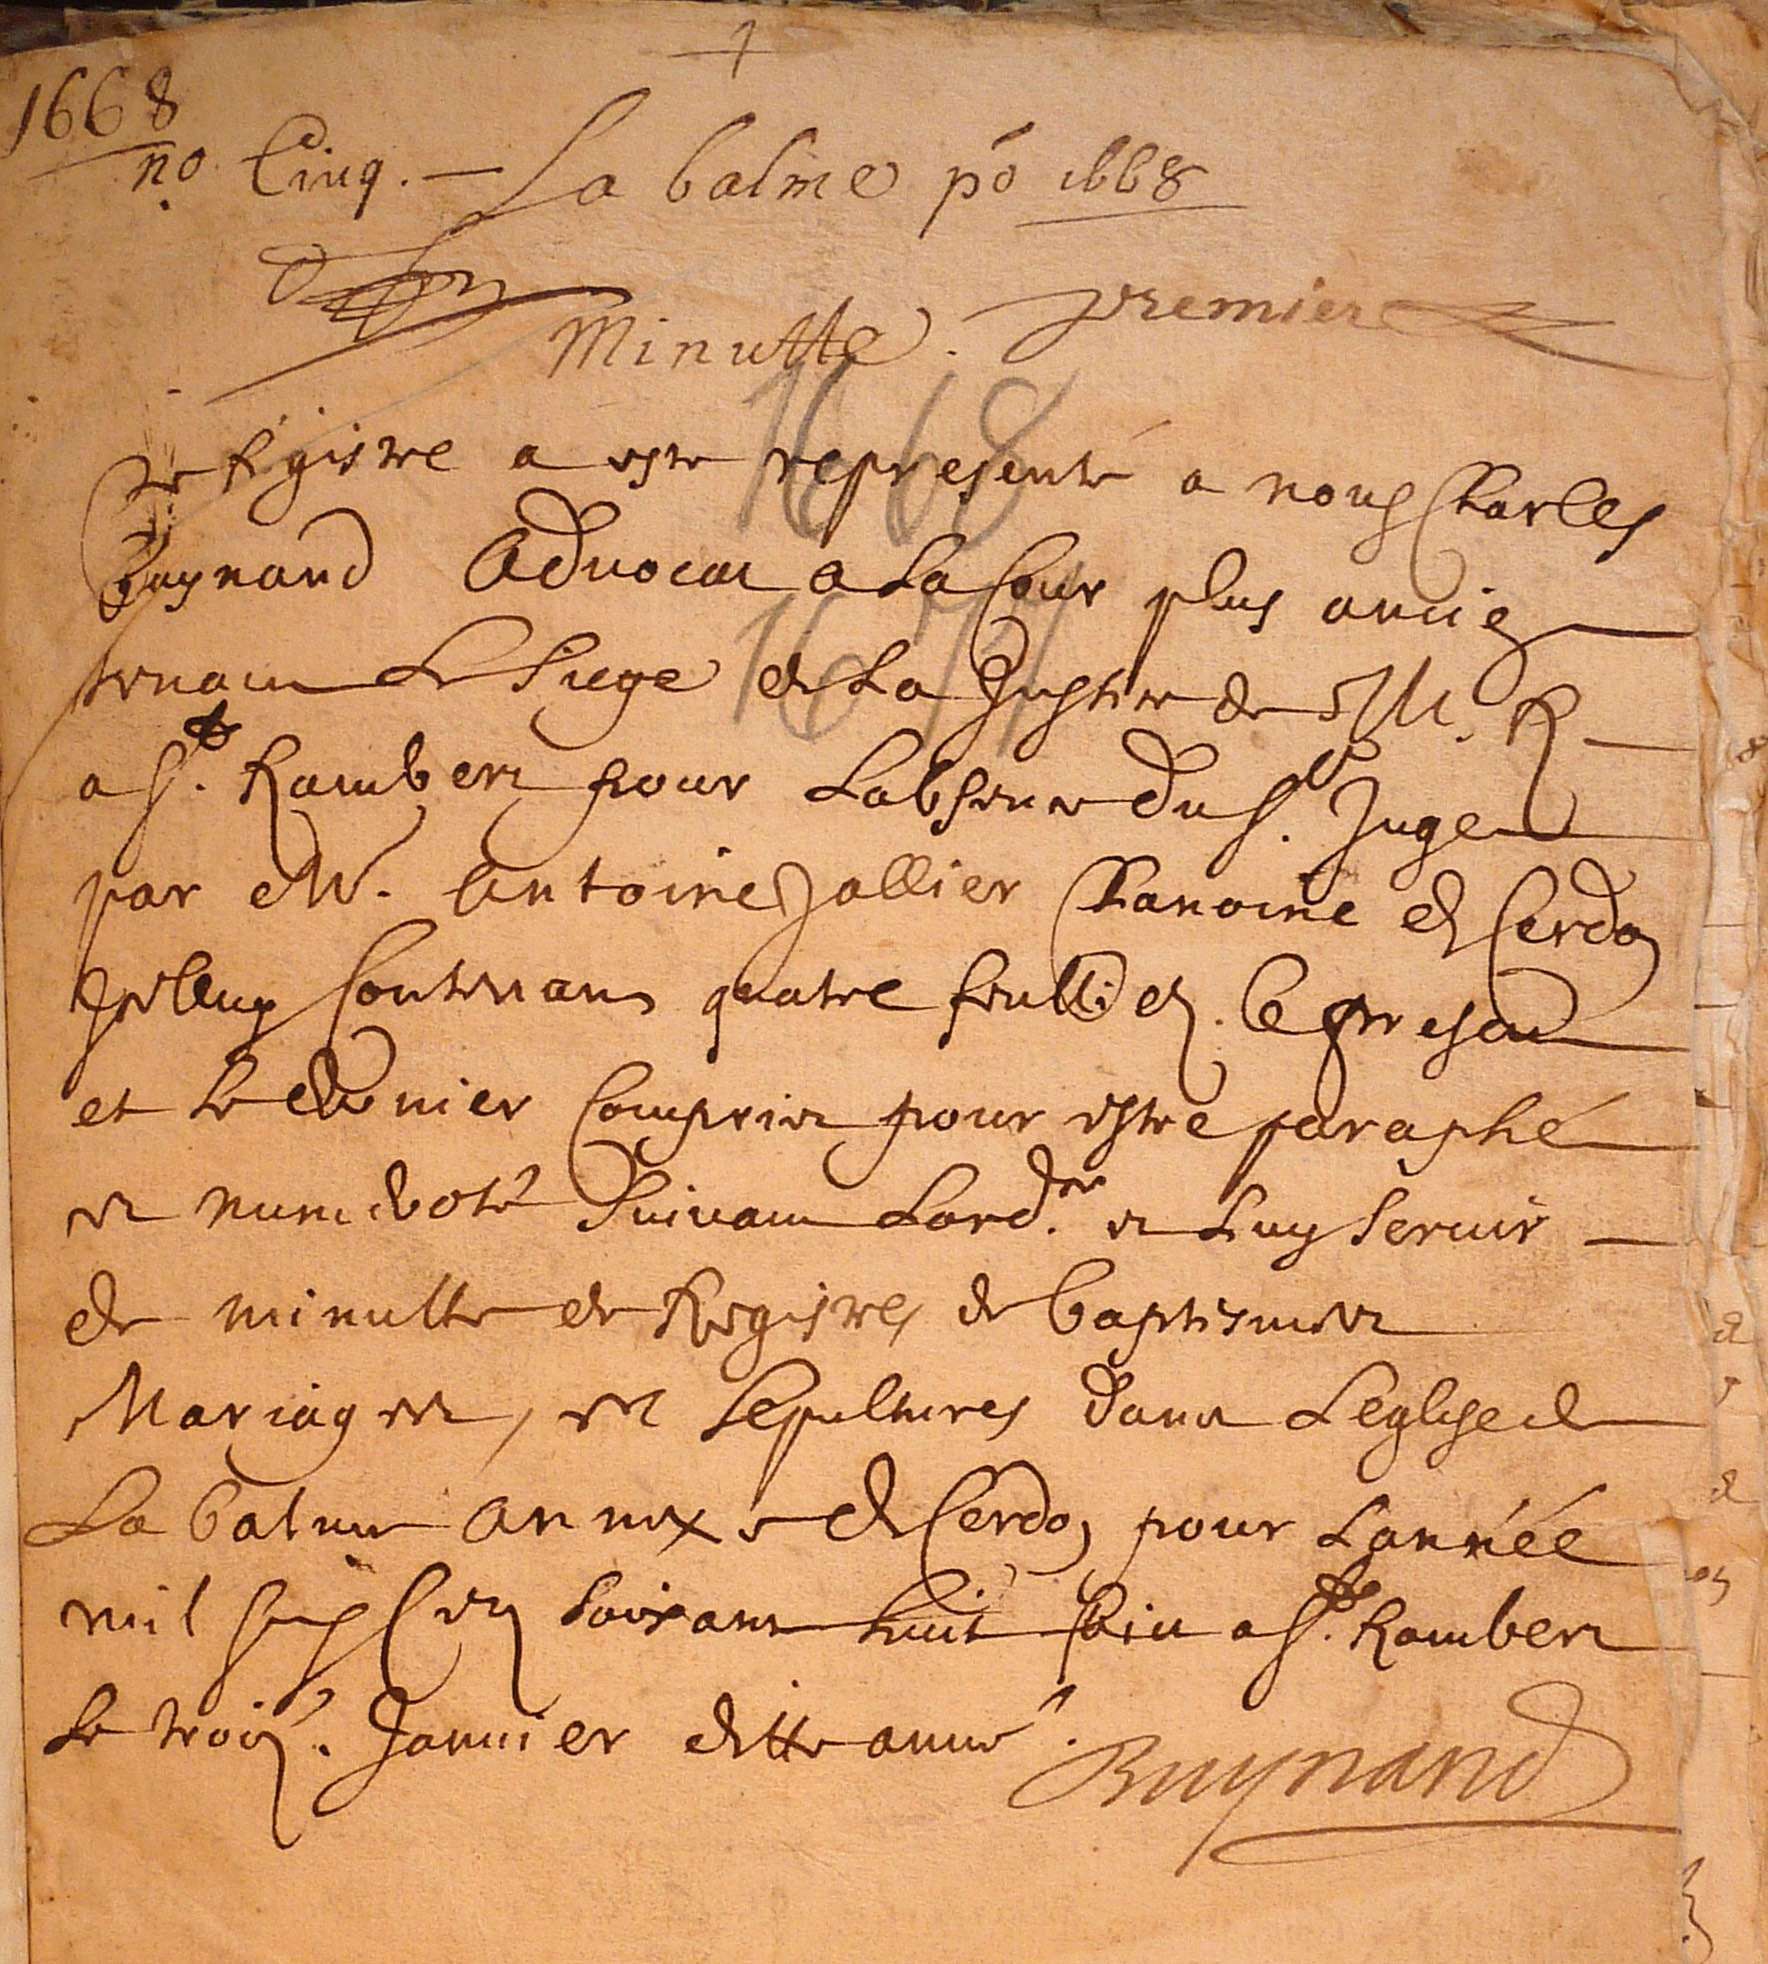 1668
no. Cinq. - La balme po 1668
Minutte. premier
1668
1674
Ce Registre a este representé a nous Charles
Buynand Advocat a La Cour plus ancie
tenant Le Siege de La Justice de M. R
a St. Rambert pour Labsence du Sr. Juge
par M. Antoine Jallier Chanoine de Cerdo
contenant quatre feullie Le present
et Le dernier Compris pour estre paraphé
et numeroté Suivant Lord.ce et Luy Servir
de minutte de Registres de baptismes
Mariages, et Sepultures dans Leglise de
La balme annexe de Cerdo pour Lannée
mil six Cen soixante huit fait a St. Rambert
Le trois.e Janvier ditte année.
Buynand